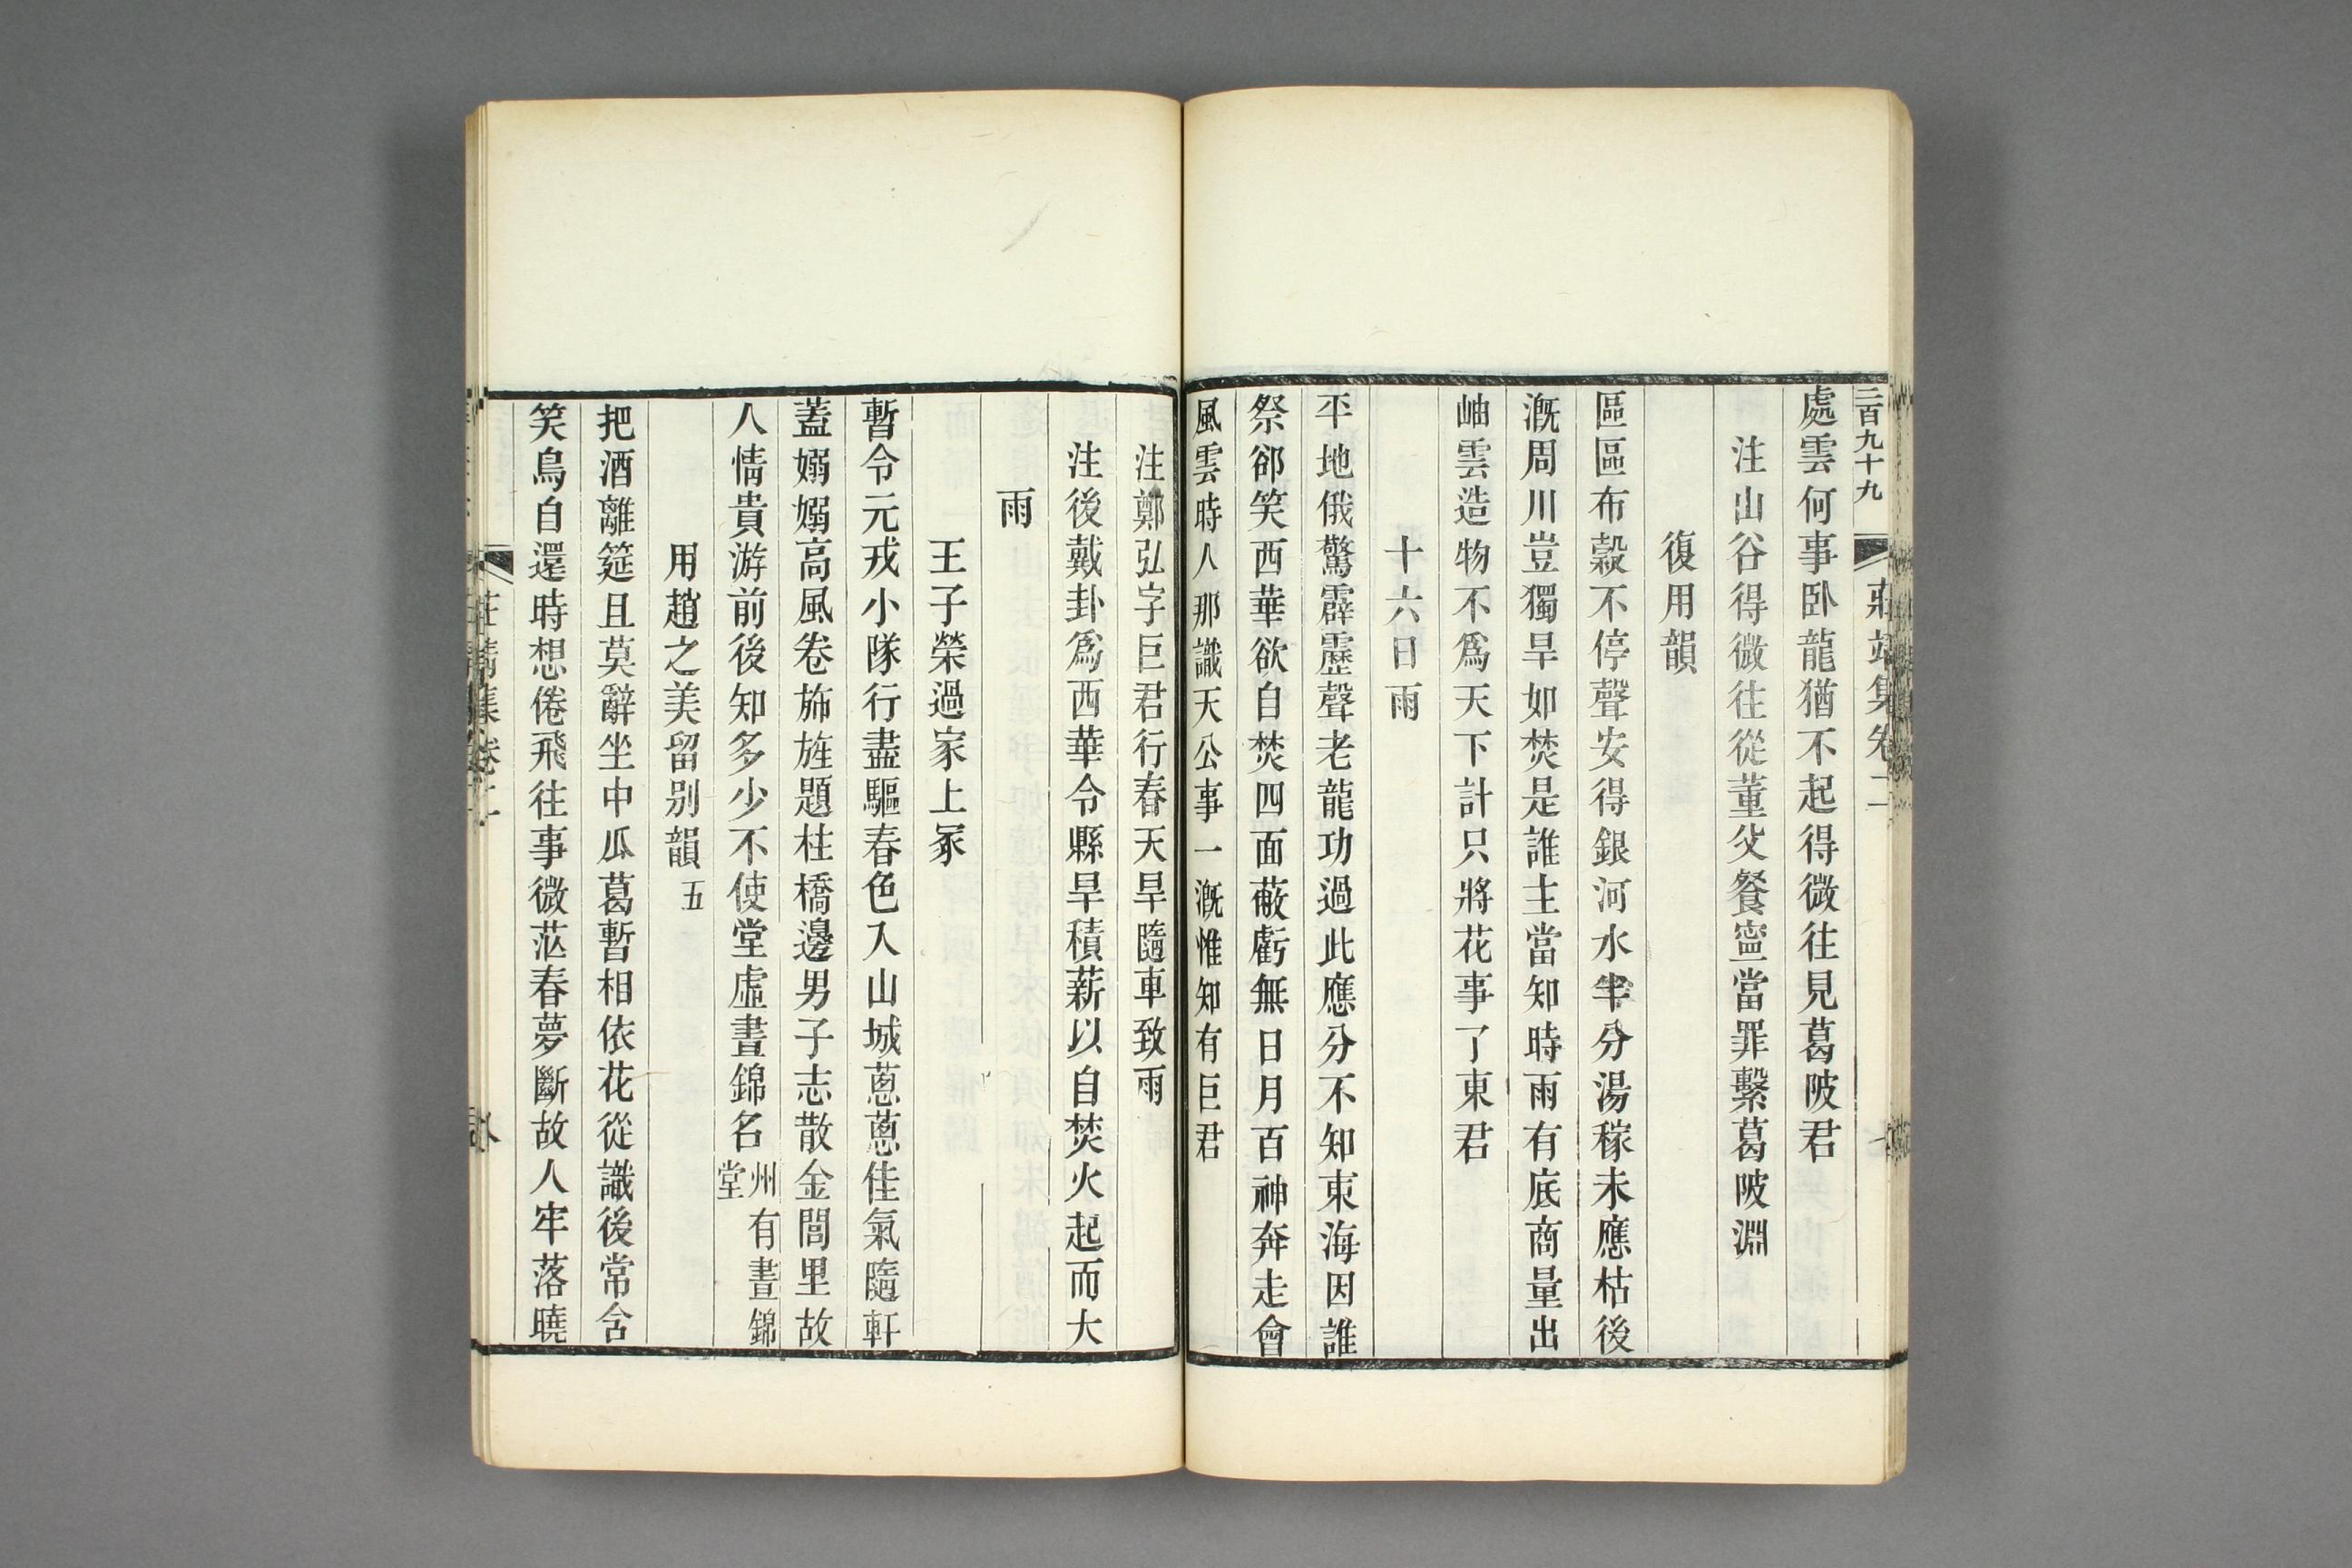 三百九十九 莊靖集卷二
處雲何事卧龍猶不起得微往見葛陂君
注山谷得微往從董父餐寧當罪繫葛陂淵
復用韻
區區布穀不停聲安得銀河水半分湯稼未應枯後
漑周川豈獨旱如焚是誰主當知時雨有底商量出
岫雲造物不爲天下計只將花事了東君
十六日雨
平地俄驚霹靂聲老龍功過此應分不知東海因誰
祭郤笑西華欲自焚四面蔽虧無日月百神奔走會
風雲時人那識天公事一漑惟知有巨君
注鄭弘字巨君行春天旱隨車致雨
注後戴卦爲西華令縣旱積薪以自焚火起而大
雨
王子榮過家上冢
暫令元戎小隊行盡驅春色入山城蔥蔥佳氣隨軒
蓋嫋嫋高風卷旆旌題柱橋邊男子志散金閭里故
人情貴游前後知多少不使堂虛晝錦名州有晝錦堂
用趙之美留别韻五
把酒離筵且莫辭坐中瓜葛暫相依花從識後常含
笑鳥自還時想倦飛往事微茫春夢斷故人牢落曉
莊靖集卷二 八